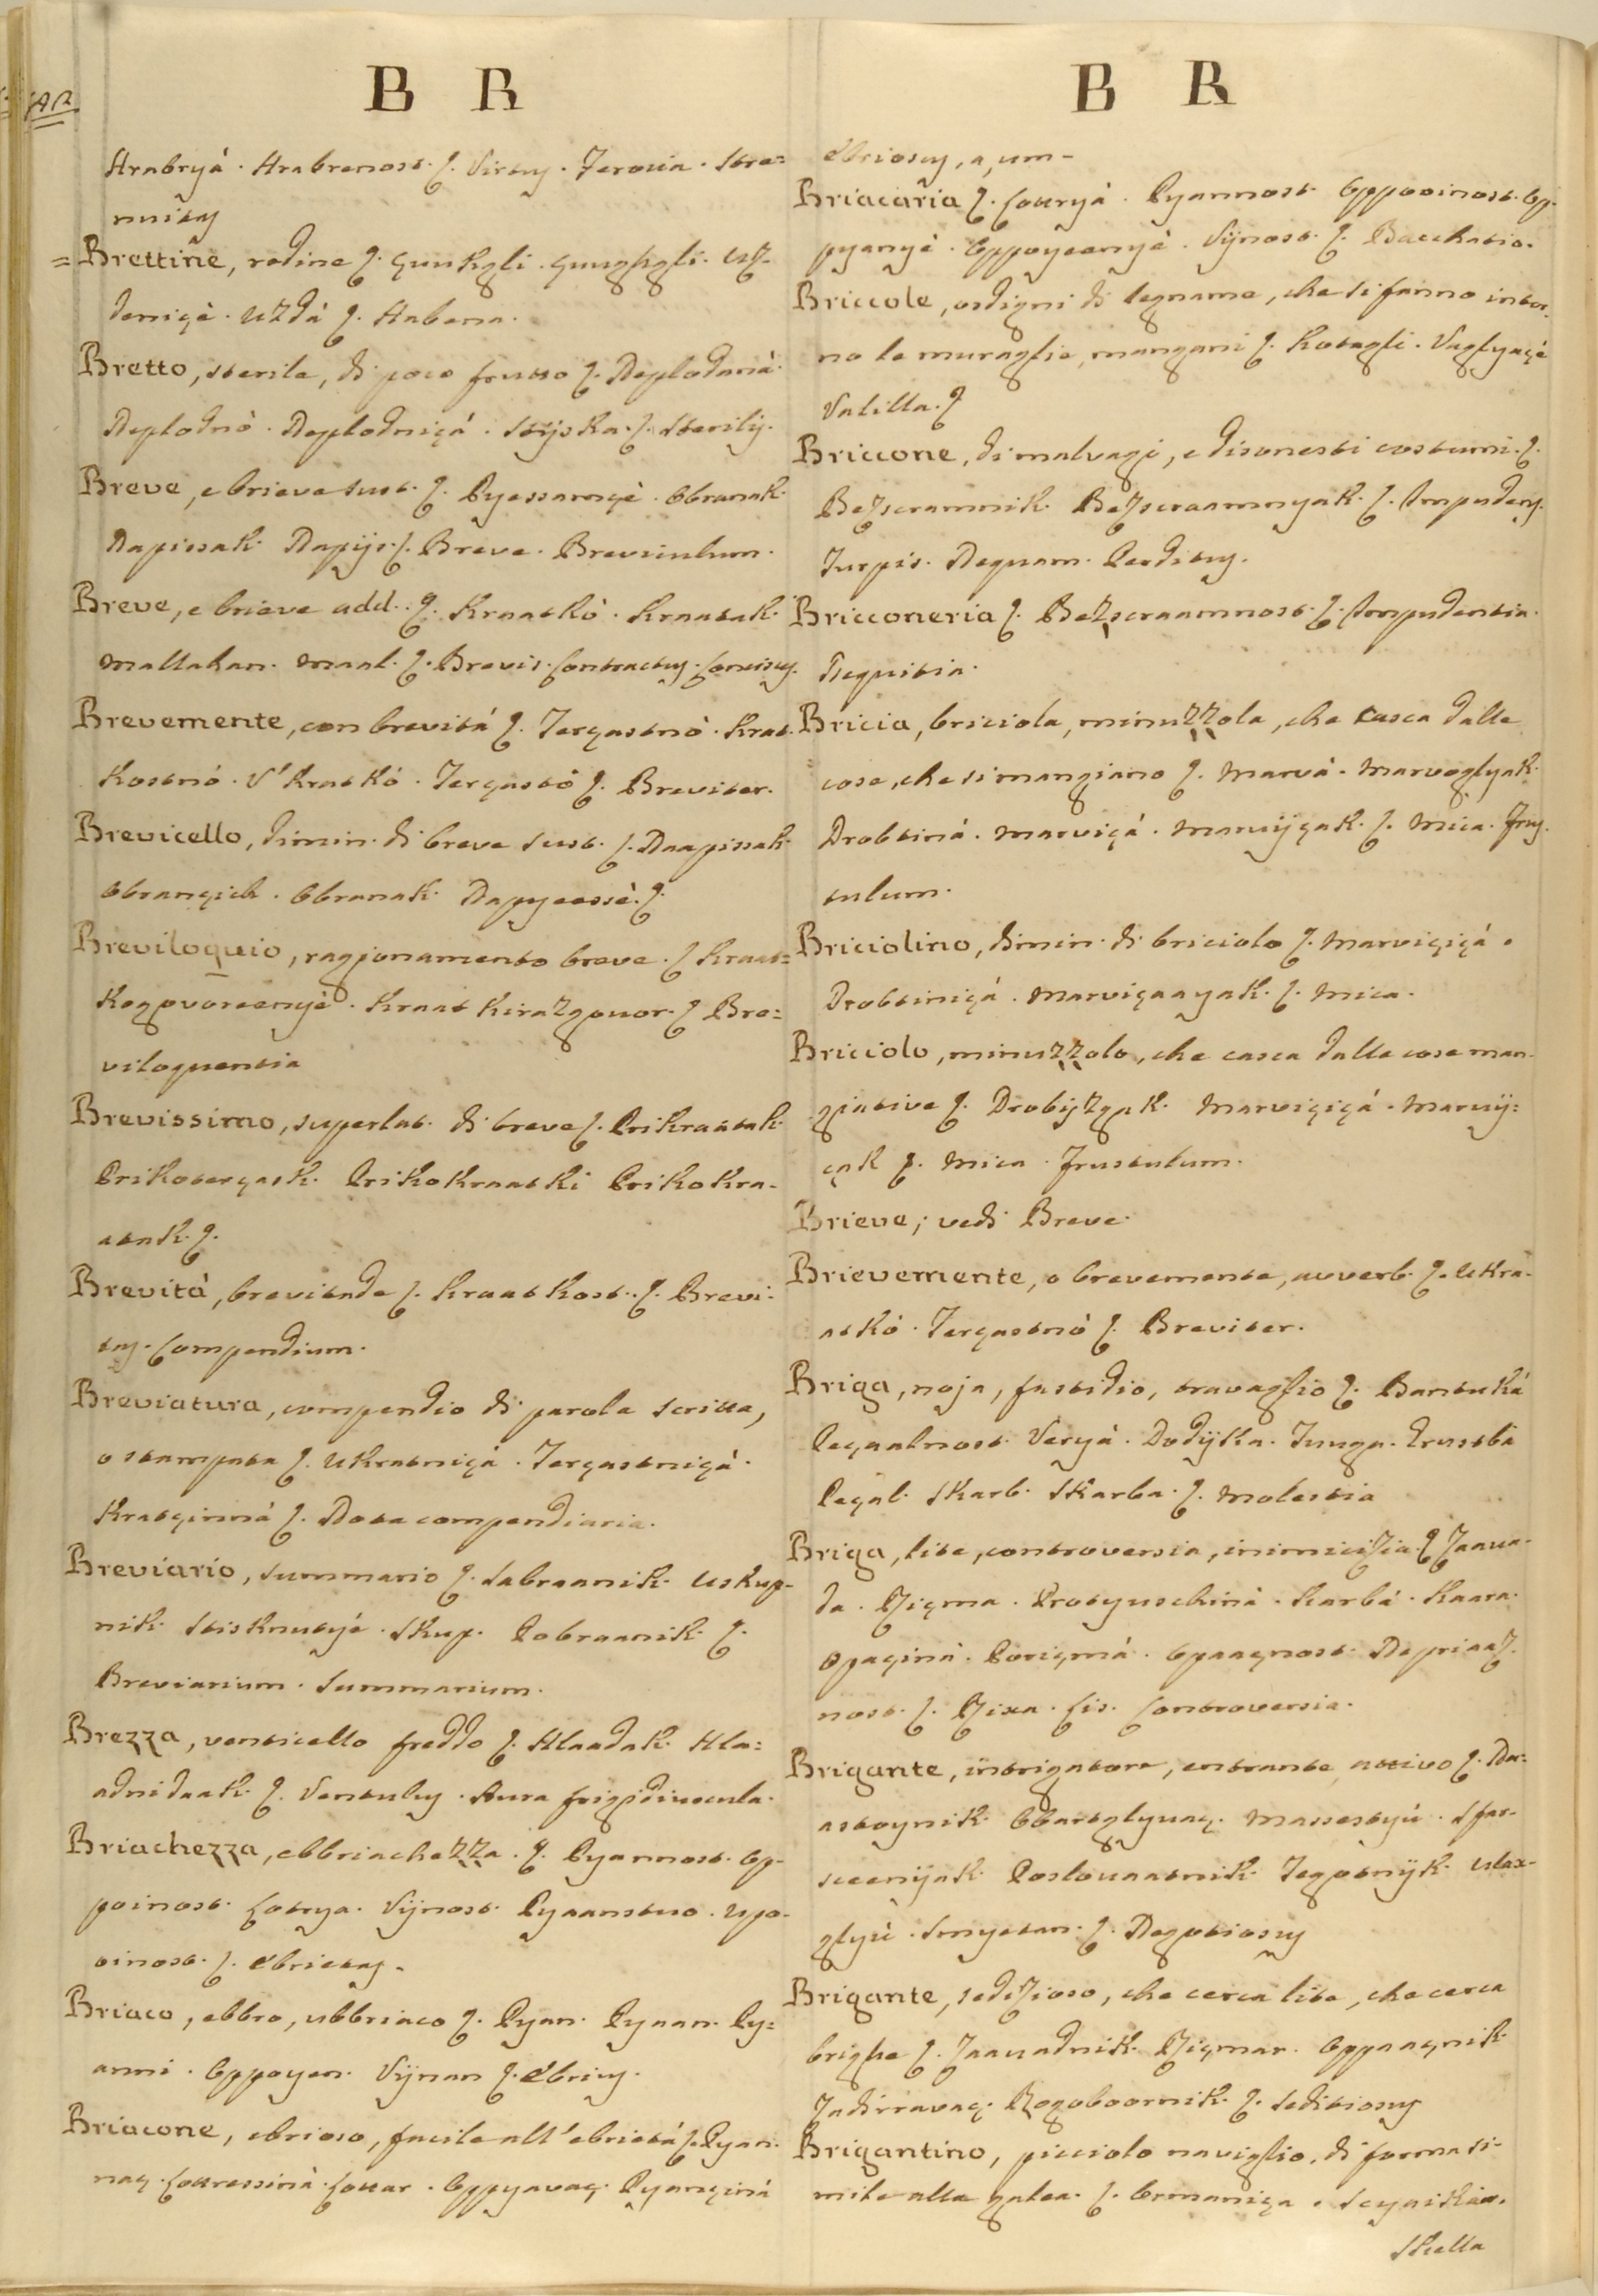 AR
B R
Hrabryá. Hrabrenost. Virtus. Ferocia. Stre=
nuitas
= Brettine, redine Guukgli. Guughgli. Uz-
deniçè. Uzdá Habena.
Bretto, sterile, di poco frutto Neplodaná.
Neplodnò. Neplodniçá. Styska. Sterilis.
Breve, e brieve sust. Pyessamçè. Obranak.
Napissak. Napijs. Breve. Breviculum.
Breve, e brieve add. Kraatkò. Kraatak.
Mallahan. Maal. Brevis. Contractus. Concisus.
Brevemente, con brevitá Tergastnò. Krat-
kostnò. V'kratkò. Tergastò Breviter.
Brevicello, dimin. di breve sust. Naapissak.
Obrançich. Obranak. Napyeossè.
Breviloquio, ragionamento breve. Kraat=
kogovoreenyè. Kraatkirazgovor. Bre=
viloquentia
Brevissimo, superlat. di breve. Prikraatak.
Prikotergask. Prikokraatki Prikokra-
atak.
Brevitá, brevitade Kraatkost. Brevi-
tas. Compendium.
Breviatura, compendio di parola scritta,
o stampata Ukratniçá. Tergastniçá.
Kratçinná Nota compendiaria.
Breviario, summario Sabraanik. Uskup-
nik. Stisknutyé. Skup. Pobraanik.
Breviarium. Summarium.
Brezza, venticello freddo Hlaadak. Hla=
adnidaak. Ventulus. Aura frigidiuscula.
Briachezza, ebbriachezza. Pyannost. Op-
poinost. Cotrya. Vijnost. Pyaanstuo. Upo-
oinost. Ebrietas.
Briaco, ebbro, ubbriaco Pyan. Pyaan. Py=
anni. Oppoyen. Vijnan Ebrius.
Briacone, ebrioso, facile all'ebrietá Pyan-
naç. Cottressiná. Cottar. Oppyavaç. Pyançiná
B R
Ebriosus, a, um-
Briacaria Cottryá. Pyannost. Oppooinost. Op-
pyanyè. Oppoyeenyè. Vijnost. Bacchatio.
Briccole, ordigni di legname, che si fanno intor-
no le muraglie, mangani Kotagli. Vaglyaçè
Valilla.
Briccone, di malvagi, e disonesti costumi.
Bezsramnik. Bezsraamnyak. Impudens.
Turpis. Nequam. Perditus.
Bricconeria Bezsraamnost. Impudentia.
Nequitia.
Bricia, briciola, minuzzola, che casca dalle
cose, che si mangiano Marvá. Marvoglyak.
Drobtiná. Marviçá. Marvijçak. Mica. Frus-
tulum.
Briciolino, dimin. di briciolo Marviçiçá.
Drobtiniçá. Marviçaayak. Mica.
Briciolo, minuzzolo, che casca dalle cose man-
giative Drobijzgak. Marviçiçá. Marvij=
çak Mica. Frustulum.
Brieve, vedi Breve.
Brievemente, o brevemente, avverb. Ukra-
atkò. Tergastnò Breviter.
Briga, noja, fastidio, travaglio Bantuká
Peçaalnost. Veryá. Dodijka. Tuuga. Trustbá
Peçal. Skarb. Skarba. Molestia
Briga, lite, controversia, inimicizia. Zaava-
da. Riçma. Protyuschiná. Karbá. Kaara.
Opaçiná. Poriçmá. Opaaçnost. Nepriaaz-
nost. Rixa. Lis. Controversia.
Brigante, intrigatore, entrante, attivo Na=
astoynik. Obbartglyvaç. Massestyù. Sfar-
sceenijak. Poslovaatnik. Tegotnijk. Ulax-
glyù. Smyetan. Negotiosus
Brigante, sedizioso, che cerca lite, che cerca
brighe Zaavadnik. Riçmar. Oppaaçnik.
Zadirravaç. Rogoboornik. Seditiosus
Brigantino, picciolo naviglio, di forma si-
mile alla galea. Ormaniça. Scyaikaa.
Skella